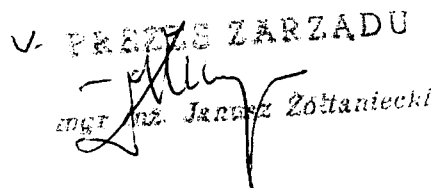 V. PREZES ZARZĄDU
mgr inż. Janusz Żółtaniecki